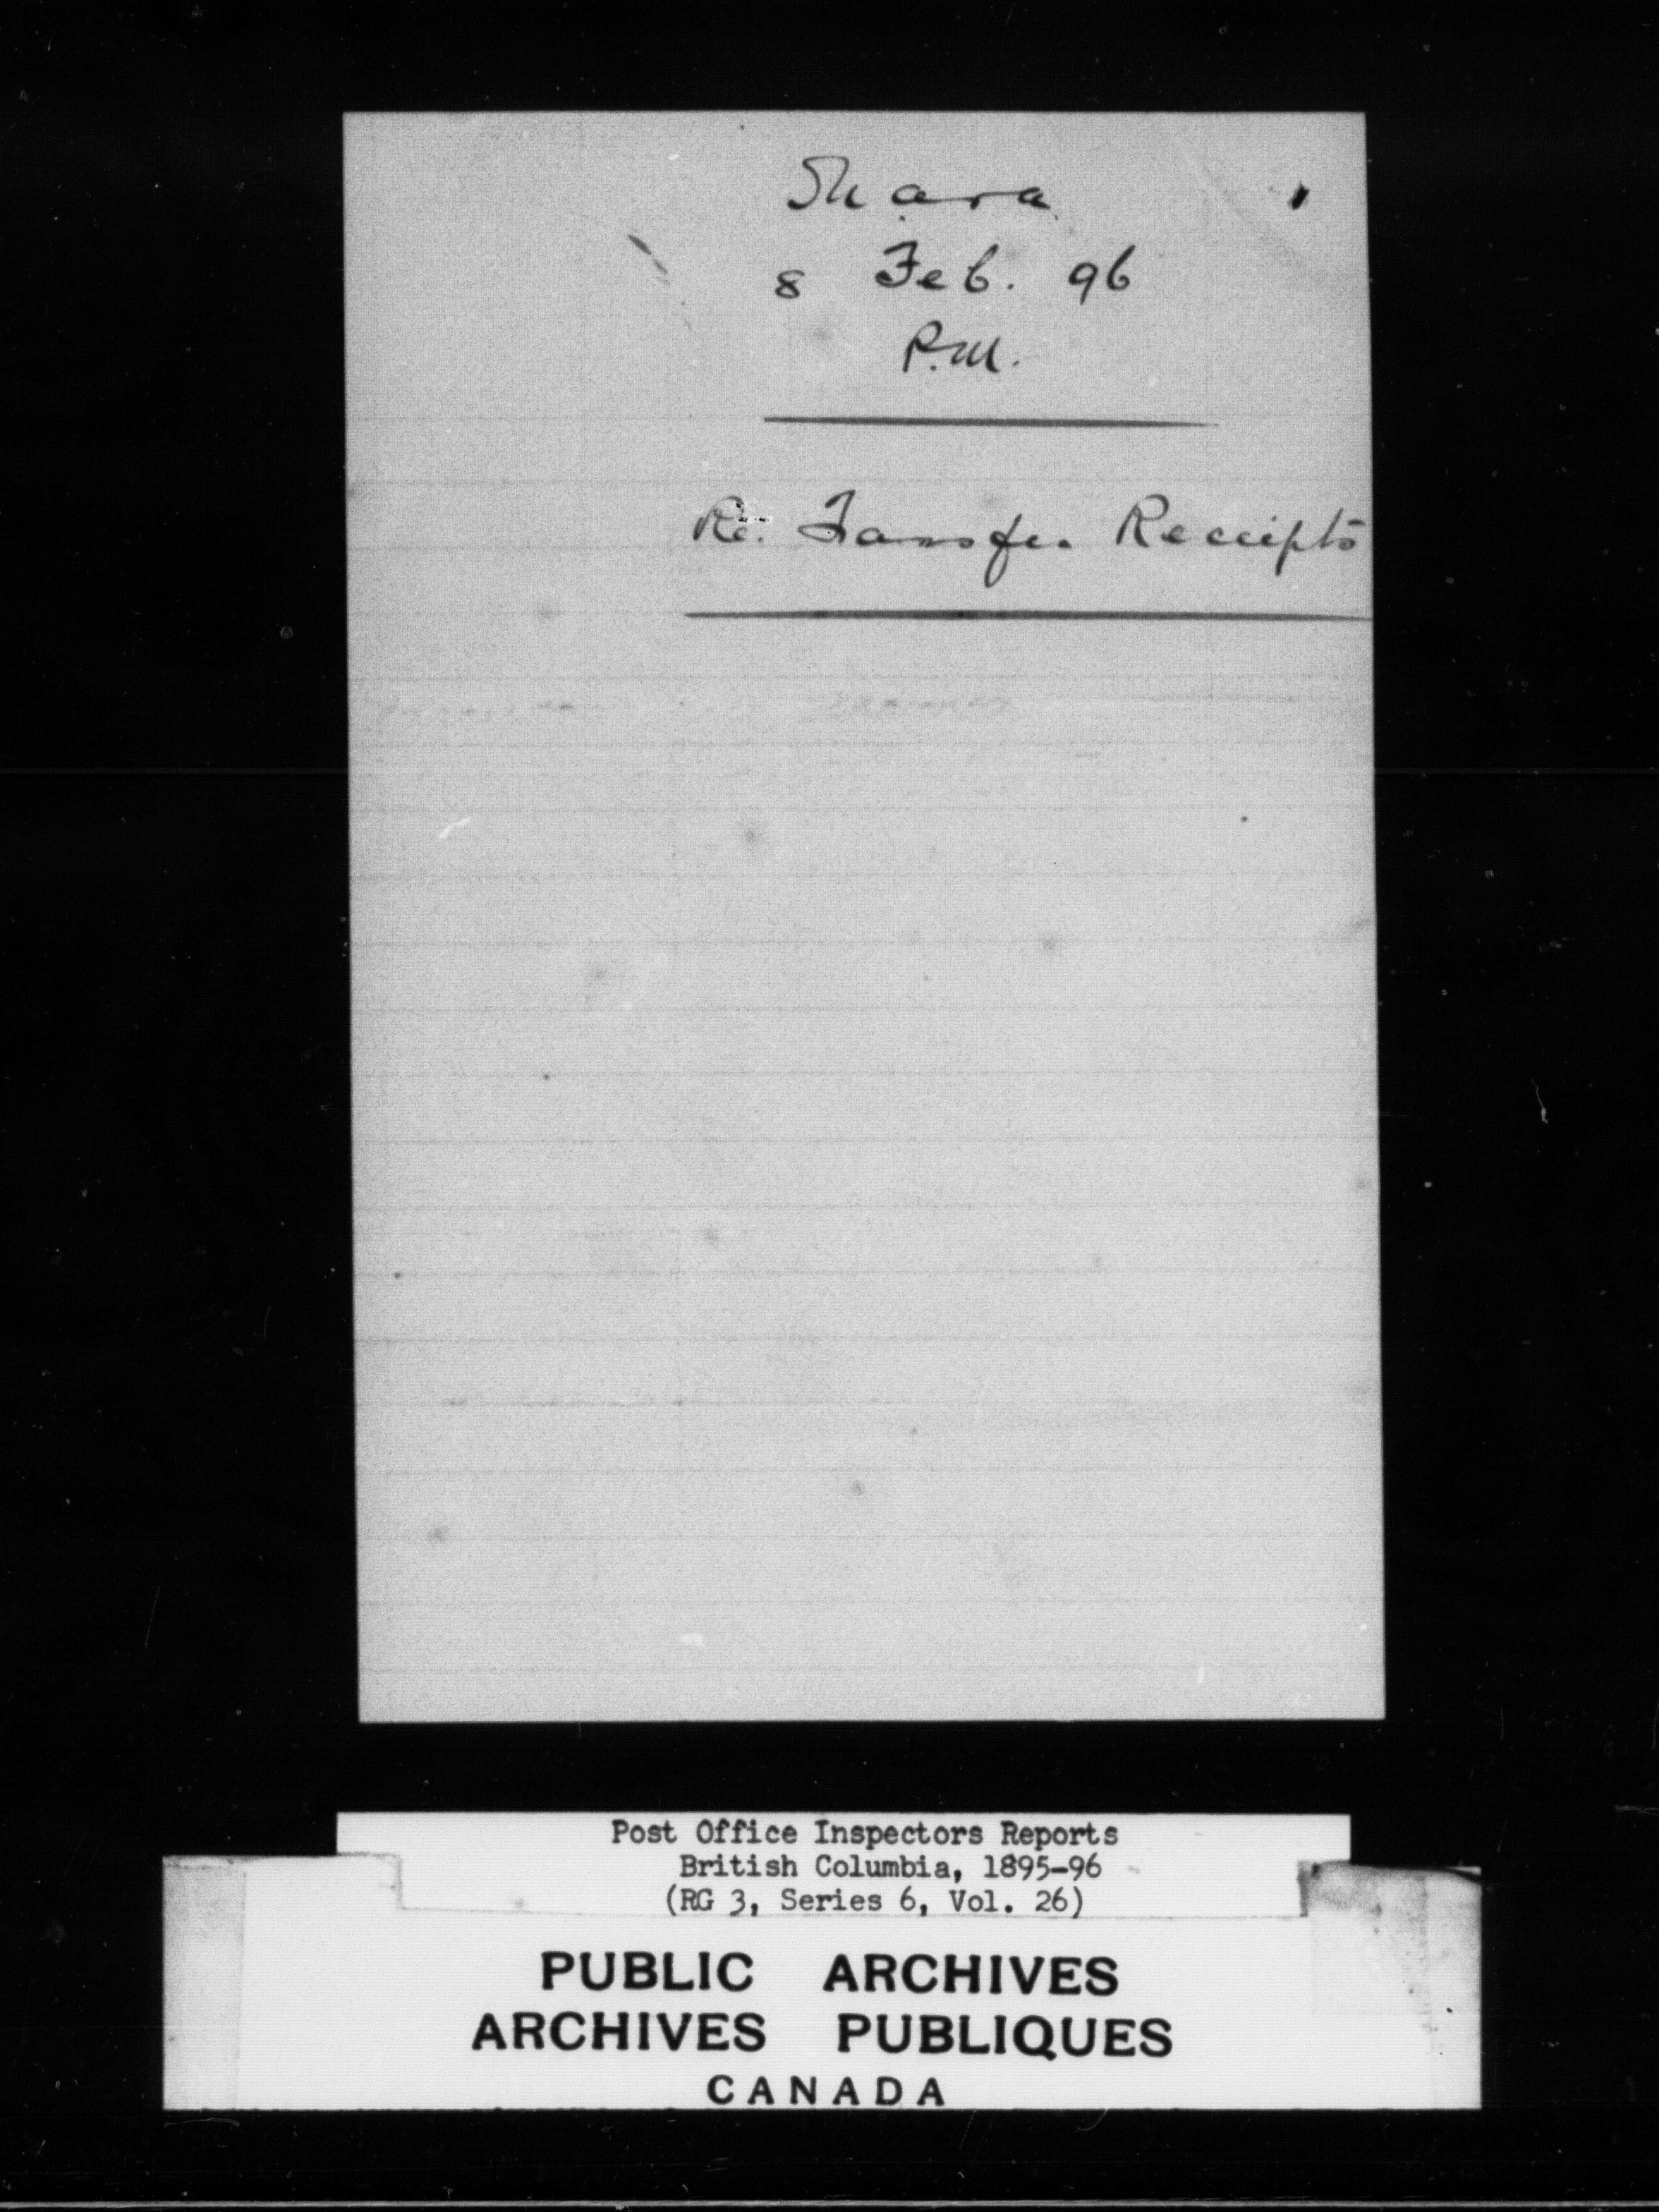 Mara
8 Feb. 96
P.M.
Re. Transfer Receipts
Post Office Inspectors Reports
British Columbia, 1895-96
(RG 3, Series 6, Vol. 26)
PUBLIC ARCHIVES
ARCHIVES PUBLIQUES
CANADA